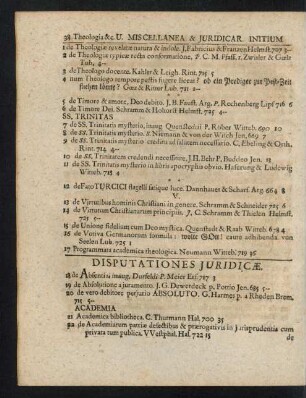 38 Theologia &c. U. MISCELLANEA & JURIDICAR. INITIUM
1 de Theologiæ revelatæ natura & indole. J. Fabricius & Frantzen Helmst. 707 3--
2 de Theologiæ typicæ recta conformatione, P. C. M. Pfaff. r. Zwinler & Gaelc
Tub. 4--
3 de Theologo doyenza. Kahler & Leigh. Rint. 715 5
4 num Theologo tempore pestis fugere liceat? ob ein Prediger zur Pest-Zeit
fliehen könne? Goze & Ritter Lub. 711 2--
5 de Timore & amore, Deo debito. J. B. Faust. Arg. P. Rechenberg Lips 716 6
6 de Timore Dei. Schramm & Hohorst Helmst. 725 4--
SS. TRINITAS
7 de SS. Trinitatis mysterio, inaug. Quenstedii P. Röber Witteb. 690 10
8 de SS. Trinitatis mysterio. z. Niemann & von der Witteh Jen. 669 7
9 de SS. Trinitatis mysterio creditu ad salutem necessario. C. Ebeling & Gnüs.
Rint. 714 4--
10 de SS. Trinitatum credendi necessitate, J. H. Behr P. Buddeo Jen. 11
11 de SS. Trinitatis mysterio in libris apocryphis obvio. Hafenung & Ludowig
Witteb. 718 4
12 de Fato TURCICI flagelli satique luce. Dannhauer & Scharf. Arg 664 8
V.
13 de Virtutibus hominis Christiani in genere. Schramm & Schneider 715 6
14 de Virtutum Christianarum principio. J. C. Schramm & Thielen Helmst.
715 6--
15 de Unione fidelium cum Deo mystica. Quenstedt & Raab Witteb. 678 4
16 de Votiva Germanorum formula: wolte GOtt! caute adhibenda. von
Seelen Luk. 725 1
17 Programmata academica theologica. Neumann Witteb. 719 36
DISPUTATIONES JURIDICÆ.
18 de Absentia inaug. Dursfeldi P. Meier Erf. 717 3
19 de Absolutione a juramento. J. G. Dewerdeck p. Potrio Jen. 695 5--
20 de vero debitore perjurio ABSOLUTO. G. Harmes p. a Rhoden Brem.
715 5--
ACADEMIA
21 Academica bibliotheca. C. Thurmann Hal. 700 35
22 de Academiarum patriæ defectibus & prærogativis in jurisprudentia cum
privata tum publica. VVestphal. Hal. 722 15
de